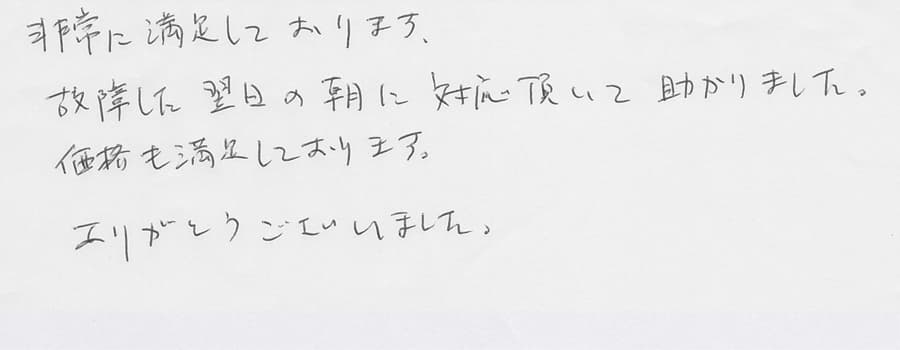 非常に満足しております、
故障した翌日の朝に対応頂いて助かりました。
価格も満足しております。
ありがとうございました。